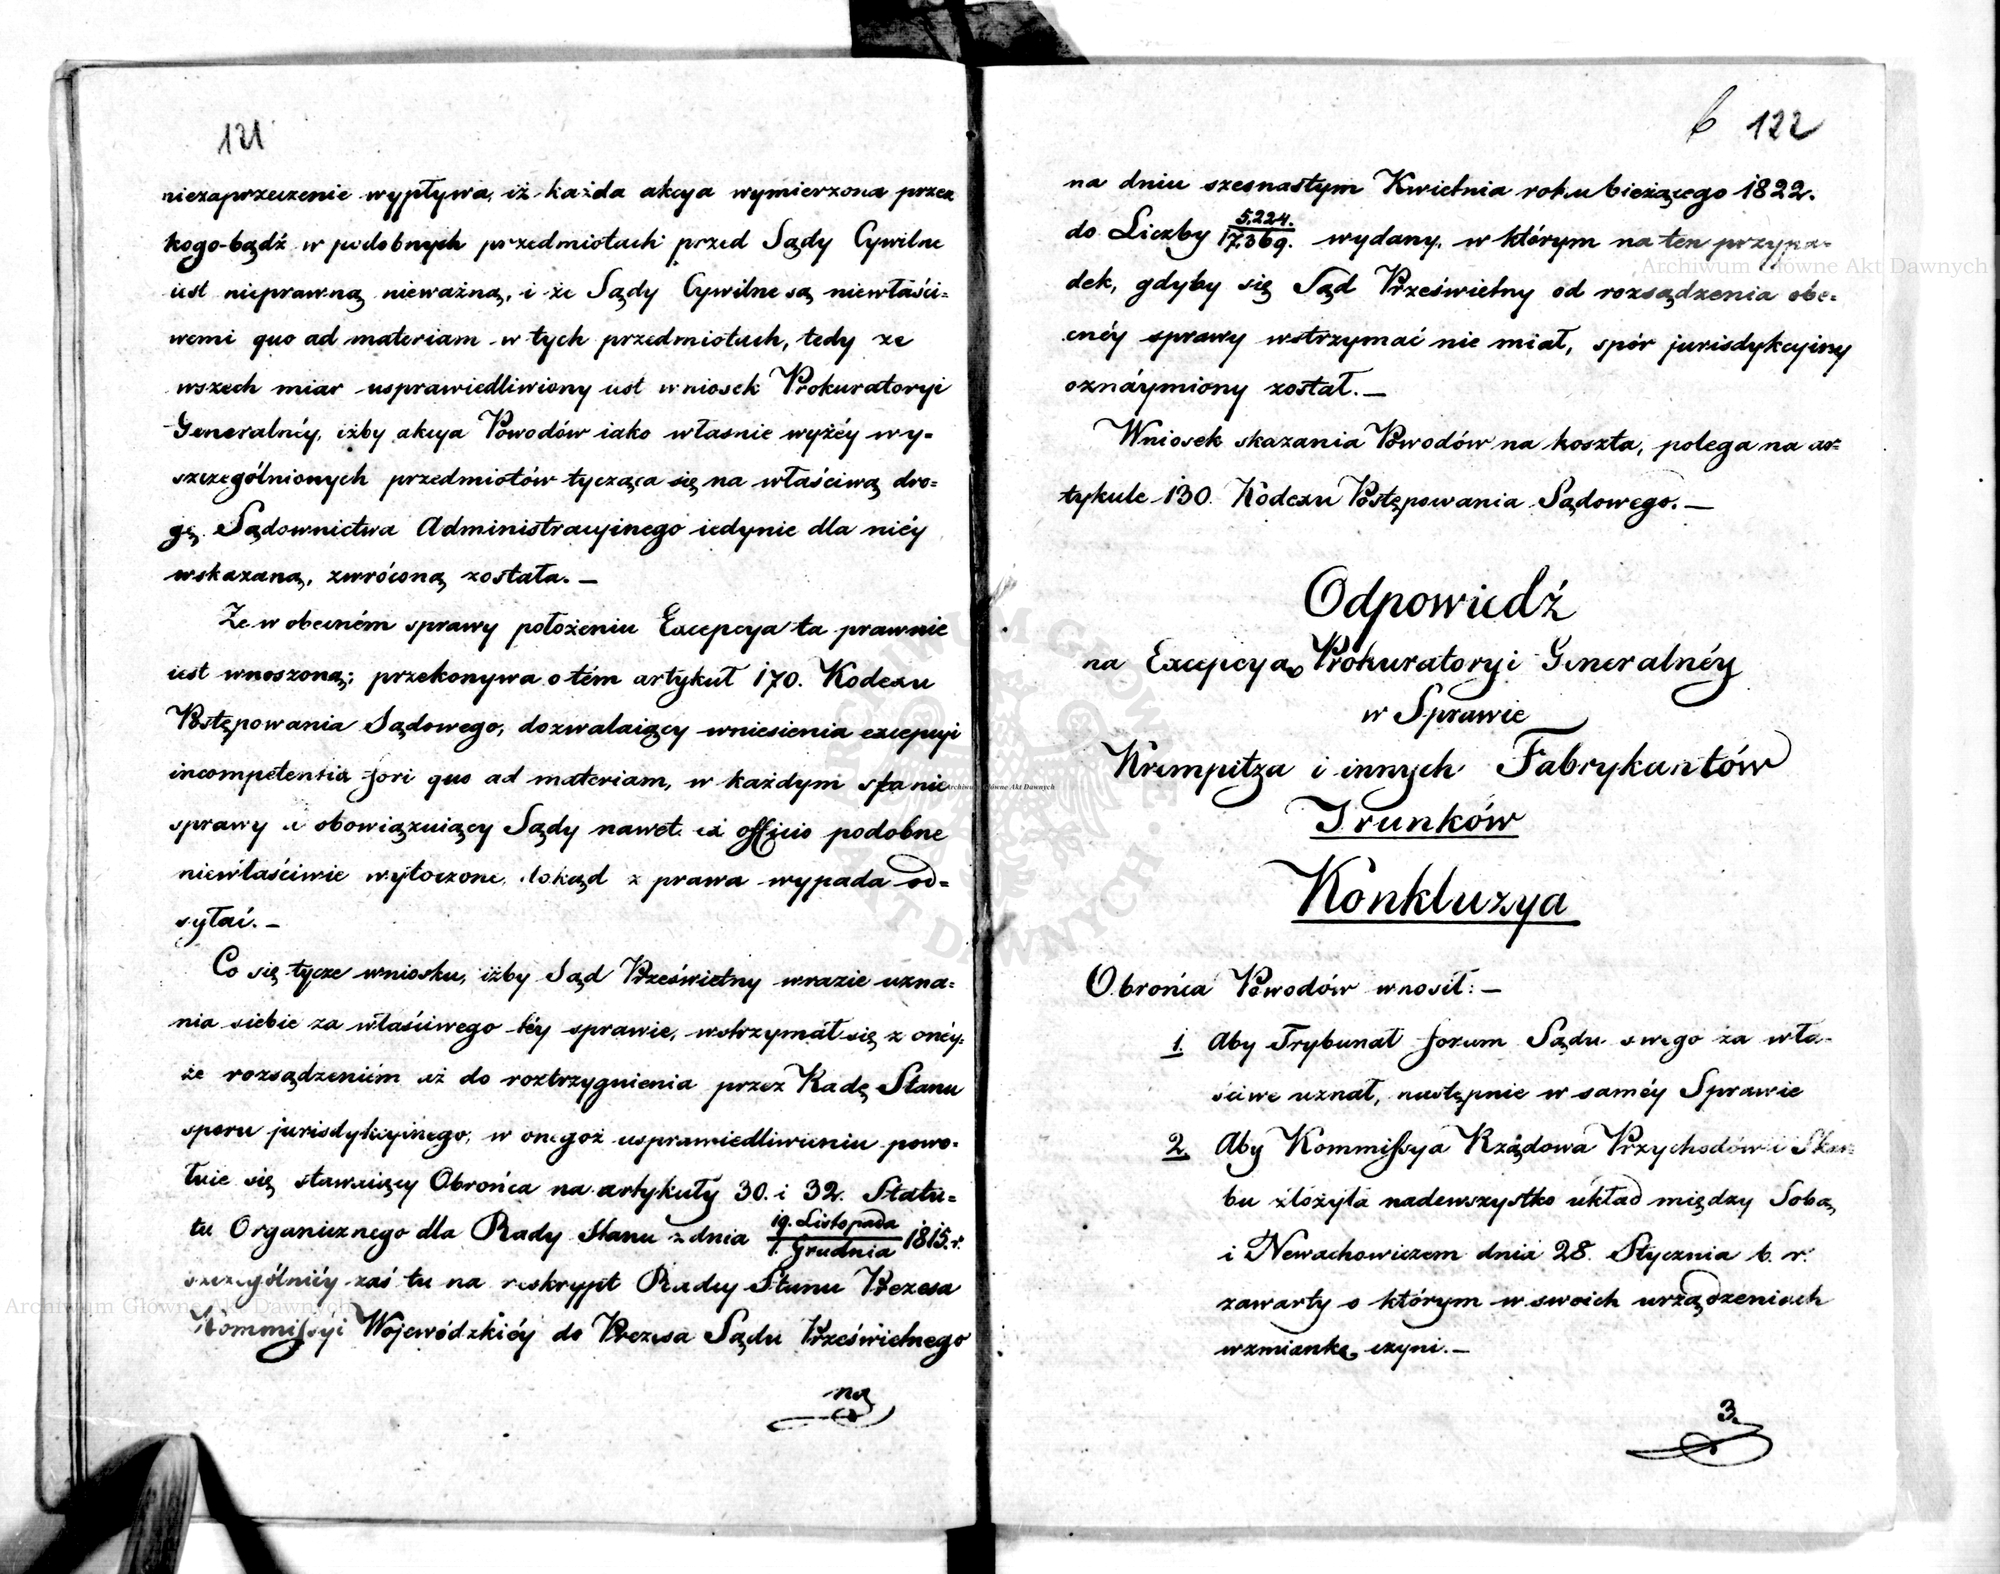 121
niezaprzeczenie wypływa, iż każda akcya wymierzona przez
kogo-bądź w podobnych przedmiotach przed Sądy Cywilne
iest nieprawną, nieważną, i że Sądy Cywilne są niewłaści=
wemi quo ad materiam w tych przedmiotach, tedy ze
wszech miar usprawiedliwiony iest wniosek Prokuratoryi
Generalnéy, iżby akcya Powodów iako własnie wyżéy wy=
szczególnionych przedmiotów tycząca się na właściwą dro=
gę Sądownictwa Administracyinego iedynie dla niéy
wskazaną, zwróconą została. —
Że w obecném sprawy położeniu Excepcya ta prawnie
iest wnoszoną; przekonywa o tém artykuł 170. Kodexu
Postępowania Sądowego, dozwalaiący wniesienia excepcyi
incompetentia fori quo ad materiam, w każdym stanie
sprawy i obowiązuiący Sądy nawet ex officio podobne
niewłaściwie wytoczone, dokąd z prawa wypada od=
syłać. —
Co się tycze wniosku, iżby Sąd Prześwietny wrazie uzna=
nia siebie za właściwego téy sprawie, wstrzymał się z onéy=
że rozsądzeniem aż do roztrzygnienia przez Radę Stanu
sporu jurisdykcyinego, w onegoż usprawiedliwieniu powo=
łuie się stawaiący Obrońca na artykuły 30. i 32. Statu=
tu Organicznego dla Rady Stanu z dnia 19. Listopada / 1. Grudnia 1815. r.
szczególniéy zaś tu na reskrypt Radcy Stanu Prezesa
Kommissyi Wojewódzkiéy do Prezesa Sądu Prześwietnego
na
6 122
na dniu szesnastym Kwietnia roku bieżącego 1822.
do Liczby 5,224. / 17,369. wydany, w którym na ten przypa=
dek, gdyby się Sąd Prześwietny od rozsądzenia obe=
cnéy sprawy wstrzymać nie miał, spór jurisdykcyiny
oznáymiony został. —
Wniosek skazania Powodów na koszta, polega na ar=
tykule 130. Kodexu Postępowania Sądowego. —
Odpowiedź
na Excepcyą Prokuratoryi Generalnéy
w Sprawie
Krempitza i innych Fabrykantów
Trunków
Konkluzya
Obrońca Powodów wnosił: —
1. Aby Trybunał forum Sądu swego za wła=
ściwe uznał, następnie w saméy Sprawie
2. Aby Kommissya Rządowa Przychodów i Skar=
bu złożyła nadewszystko układ między Sobą
i Newachowiczem dnia 28. Stycznia b. r.
zawarty o którym w swoich urządzeniach
wzmiankę czyni. —
3.
Archiwum Główne Akt Dawnych
Archiwum Główne Akt Dawnych
Archiwum Główne Akt Dawnych
ARCHIWUM GŁÓWNE AKT DAWNYCH